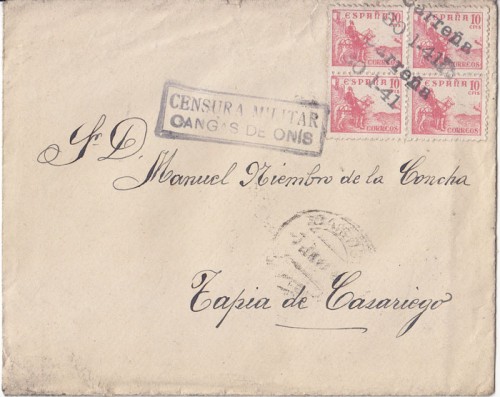 ESPAÑA 10 cts
CORREOS
ESPAÑA 10 cts
CORREOS
ESPAÑA 10 cts
CORREOS
ESPAÑA 10 cts
CORREOS
Carreña
30 1-41
Carreña
30 1-41
CENSURA MILITAR
CANGAS DE ONÍS
Sr. D.
Manuel Niembro de la Concha
Tapia de Casariego